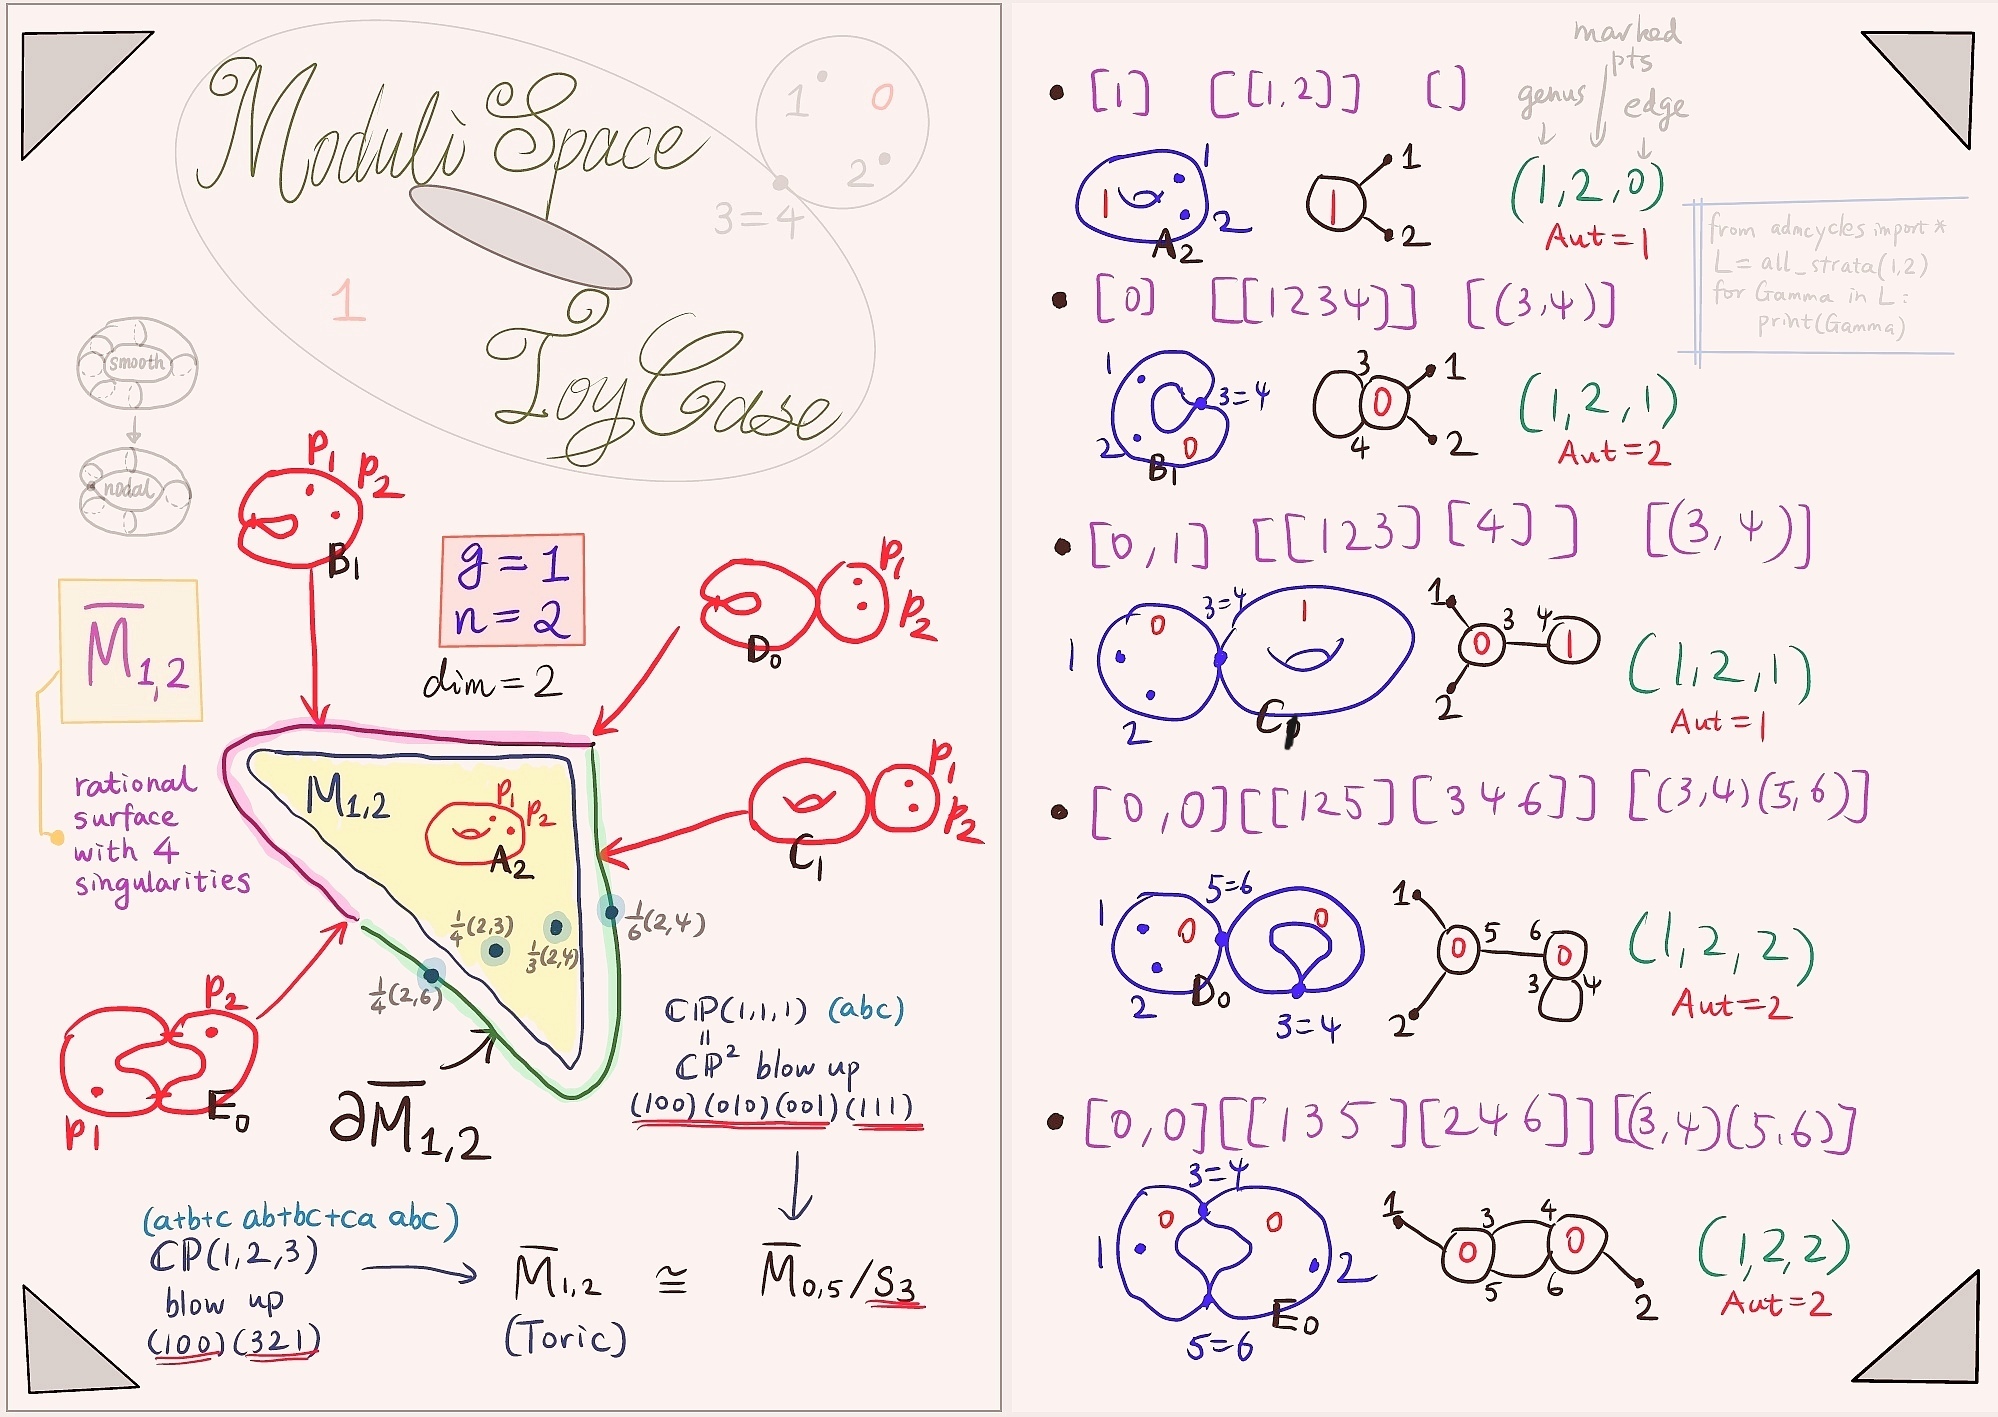 Moduli Space
Toy Case
1
0
2
3=4
1
smooth
nodal
P1 P2
B1
g = 1
n = 2
dim = 2
M̅1,2
rational
surface
with 4
singularities
P1
P2
D0
M1,2
P1 P2
A2
P1
P2
C1
1/4(2,3)
1/3(2,4)
1/6(2,4)
1/4(2,6)
P2
P1
E0
∂M̅1,2
CP(1,1,1) (abc)
=
CP² blow up
(100)(010)(001)(111)
(a+b+c ab+bc+ca abc)
CP(1,2,3)
blow up
(100)(321)
M̅1,2 ≅ M̅0,5/S3
(Toric)
marked
pts
genus
edge
[1] [[1,2]] []
1
1
2
A2
1
1
2
(1,2,0)
Aut=1
from admcycles import *
L= all_strata(1,2)
for Gamma in L:
print(Gamma)
[0] [[1234]] [(3,4)]
1
2
3=4
0
B1
3
4
0
1
2
(1,2,1)
Aut=2
[0,1] [[123][4]] [(3,4)]
1
2
0
3=4
1
C1
1
2
0
3
4
1
(1,2,1)
Aut=1
[0,0][[125][346]] [(3,4)(5,6)]
1
2
0
5=6
0
D0
3=4
1
2
0
5
6
0
3
4
(1,2,2)
Aut=2
[0,0][[135][246]][(3,4)(5,6)]
3=4
1
0
0
2
E0
5=6
1
0
3
4
5
6
0
2
(1,2,2)
Aut=2